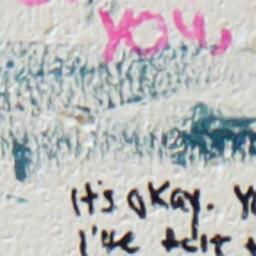 you
It's okay. Yo
I've felt